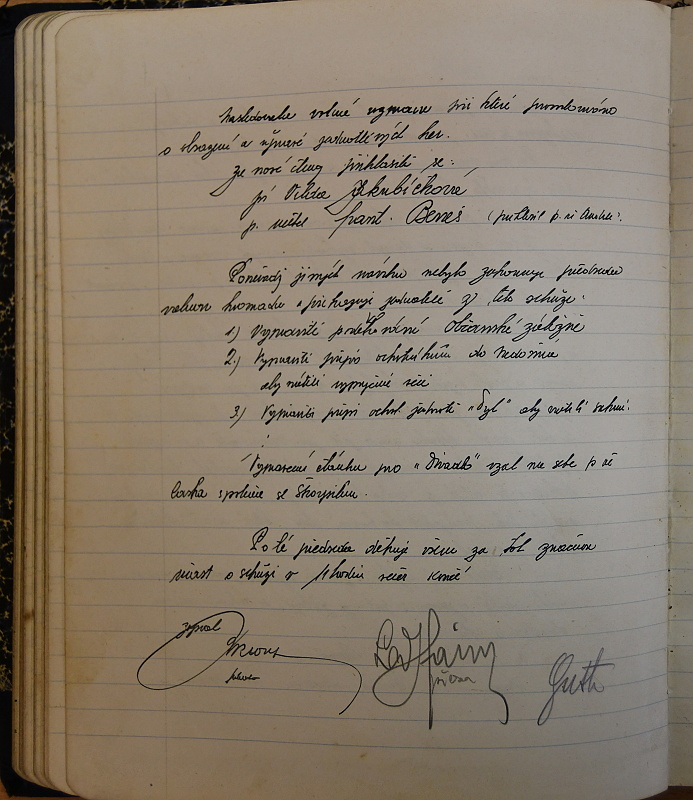 Následovala volná rozprava při které promlouváno
o obsazení a úpravě jednotlivých her.
Za nové členy přihlásili se:
pí Vilda Jakubíčková
p. učitel Frant. Beneš (přihlásil p. uč
Poněvadž jiných návrhů nebylo zakončuje předseda
valnou hromadu a přicházejí jednatelé z této schůze:
1) Vypraviti poděkování Občanské záložně
2.) Vypraviti přípis ochotníkům do
aby vrátili vypůjčené věci
3) Vypraviti přípis ochot. jednotě "Tyl" aby vrátili
Vypracování článku pro "Divadlo" vzal na sebe p. uč
spolu se Škorpilem.
Poté předseda děkuje všem za tak značnou
účast a schůzi v hodin večer končí
zapsal
Guth